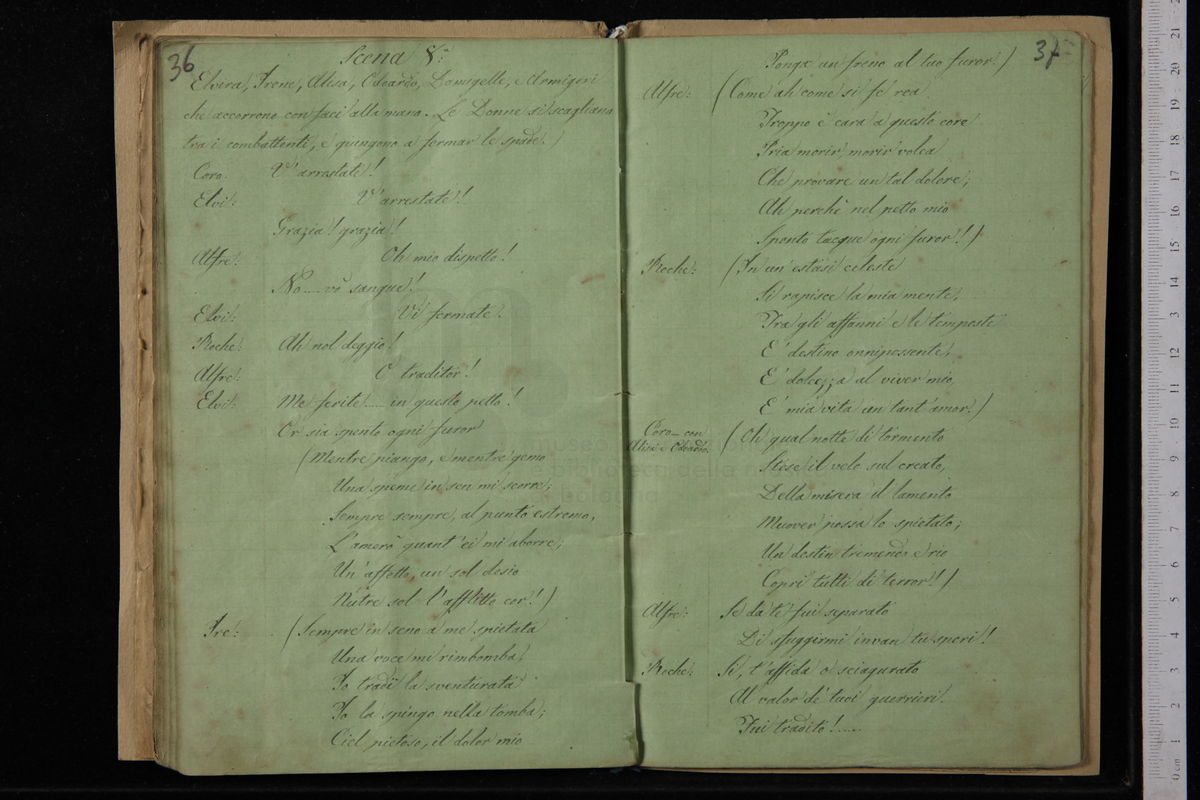 36
Scena V.a
Elvira, Irene, Alisa, Edoardo, Damigelle, e Armigeri
che accorrono con faci alla mano. Le Donne si scagliano
tra i combattenti, e giungono a fermar le spade. )
Coro. V'arrestate!
Elvi: V'arrestate!
Grazia! grazia!
Alfre: Oh mio dispetto!
No.... vo' sangue!
Elvi: Vi fermate.
Roche: Ah nol deggio!
Alfre: O traditor!
Elvi: Me ferite.... in questo petto!
Or sia spento ogni furor
(Mentre piango, e mentre gemo
Una speme in sen mi scorre;
Sempre sempre, al punto estremo,
L'amerò quant' ei mi aborre;
Un' affetto, un sol desio
Nutre sol l'afflitto cor!)
Ire: (Sempre in seno a me spietata
Una voce mi rimbomba,
Io tradì la sventurata
Io la spingo nella tomba;
Ciel pietoso, il dolor mio
37
Ponga un freno al tuo furor!)
Alfre: (Come ah come si fe' rea
Troppo è cara a questo core
Pria morir, morir volea
Che provare un tal dolore;
Ah perchè nel petto mio
Spento tacque ogni furor!)
Roche: (In un' estasi celeste
Si rapisce la mia mente,
Tra gli affanni e le tempeste
E' destino onnipossente,
E' dolcezza al viver mio,
E' mia vita un tant' amor.)
Coro con
Alisa e Edoardo. (Oh qual notte di tormento
Stese il velo sul creato,
Della misera il lamento
Muover possa lo spietato;
Un destin tremendo e rio
Coprì tutti di terror!)
Alfre: Se da te fui separato
Di sfuggirmi invan tu speri!
Roche: Sì, t'affida o sciagurato
Al valor de' tuoi guerrieri.
Fui tradito!.....
museo
biblioteca della m
di bologna
0 cm 1 2 3 4 5 6 7 8 9 10 11 12 13 14 15 16 17 18 19 20 21